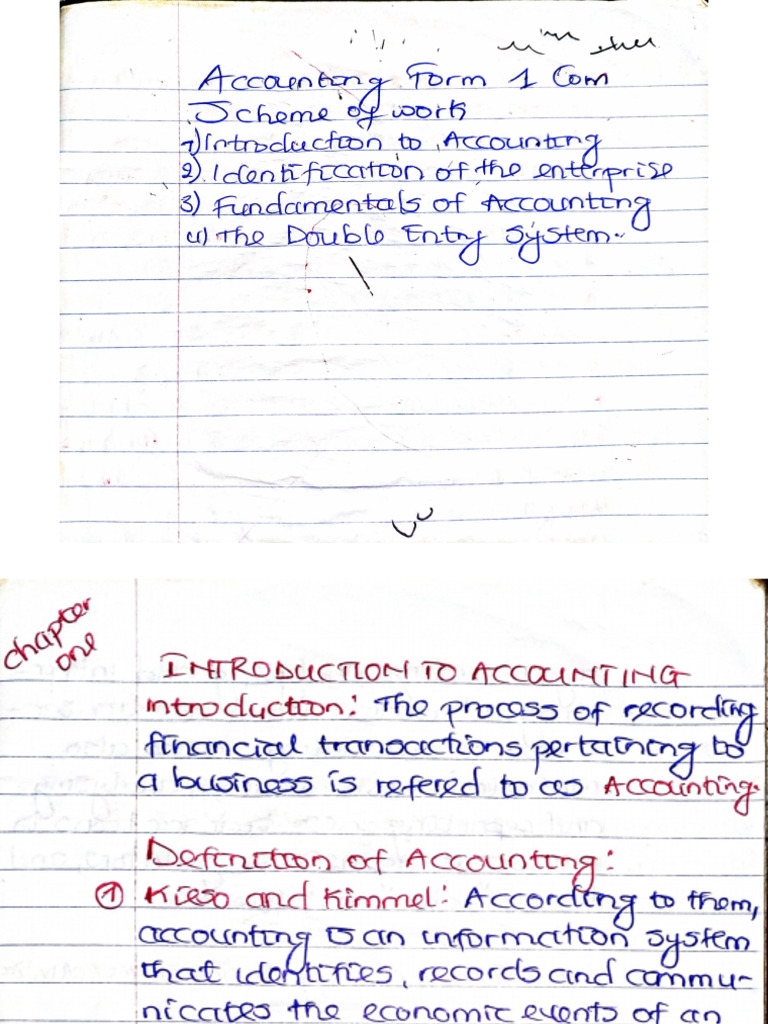 Accounting Form 1 Com
Scheme of work
1) Introduction to Accounting
2) Identification of the enterprise
3) Fundamentals of Accounting
4) The Double Entry System.
chapter
one
INTRODUCTION TO ACCOUNTING
introduction: The process of recording
financial transactions pertaining to
a business is refered to as Accounting.
Definition of Accounting:
① Kieso and Kimmel: According to them,
accounting is an information system
that identifies, records and commu-
nicates the economic events of an